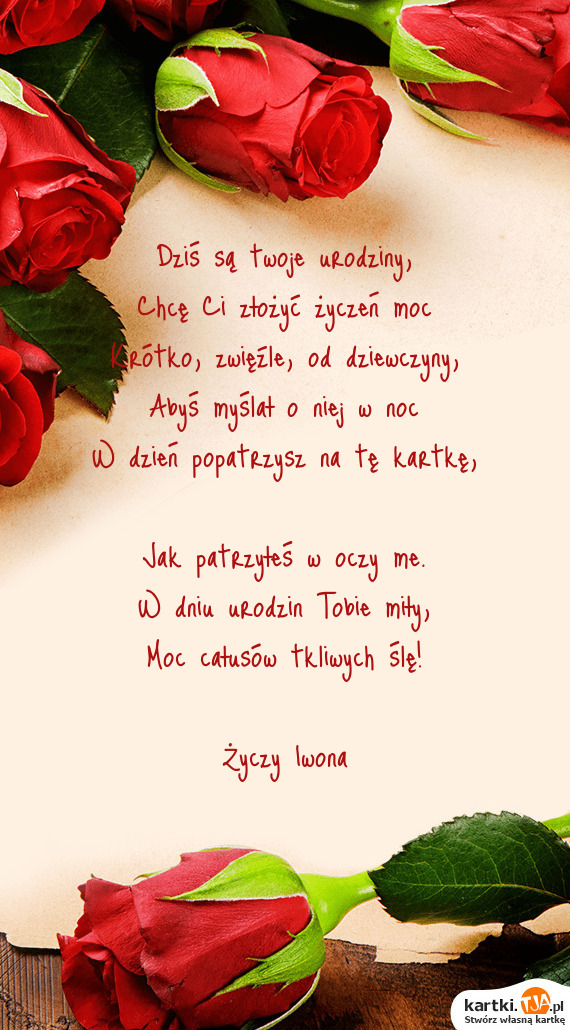 Dziś są twoje urodziny,
Chcę Ci złożyć życzeń moc
Krótko, zwięźle, od dziewczyny,
Abyś myślał o niej w noc
W dzień popatrzysz na tę kartkę,
Jak patrzyłeś w oczy me.
W dniu urodzin Tobie miły,
Moc całusów tkliwych ślę!
Życzy Iwona
kartki.TJA.pl
Stwórz własną kartkę